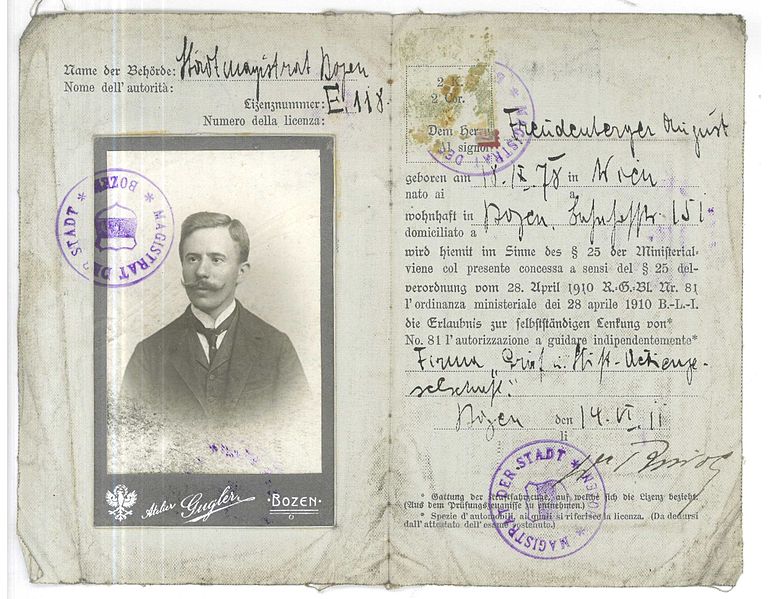 Name der Behörde: Stadtmagistrat Bozen
Nome dell' autorità:
Lizenznummer: E 118.
Numero della licenza:
MAGISTRAT DER STADT * BOZEN *
Atelier Gugler BOZEN
2 K
2 Cor.
MAGISTRAT DER
Dem Herrn Freudenberger August
Al signor
geboren am 18. IX 78 in Wien
nato ai a
wohnhaft in Bozen, 151
domiciliato a
wird hiemit im Sinne des § 25 der Ministerial-
viene col presente concessa a sensi del § 25 del-
verordnung vom 28. April 1910 R.-G.-Bl. Nr. 81
l'ordinanza ministeriale dei 28 aprile 1910 B.-L.-I.
die Erlaubnis zur selbstständigen Lenkung von*
No. 81 l'autorizzazione a guidare indipendentemente*
Firma „Gräf u. Stift-Actienge-
selschaft."
Bozen den 14. VI. 11
li
MAGISTRAT DER STADT * BOZEN *
* Gattung der Kraftfahrzeuge, auf welche sich die Lizenz bezieht.
(Aus dem Prüfungszeugnisse zu entnehmen.)
* Spezie d'automobili, ai quali si riferisce la licenza. (Da dedursi
dall'attestato dell'esame sostenuto.)